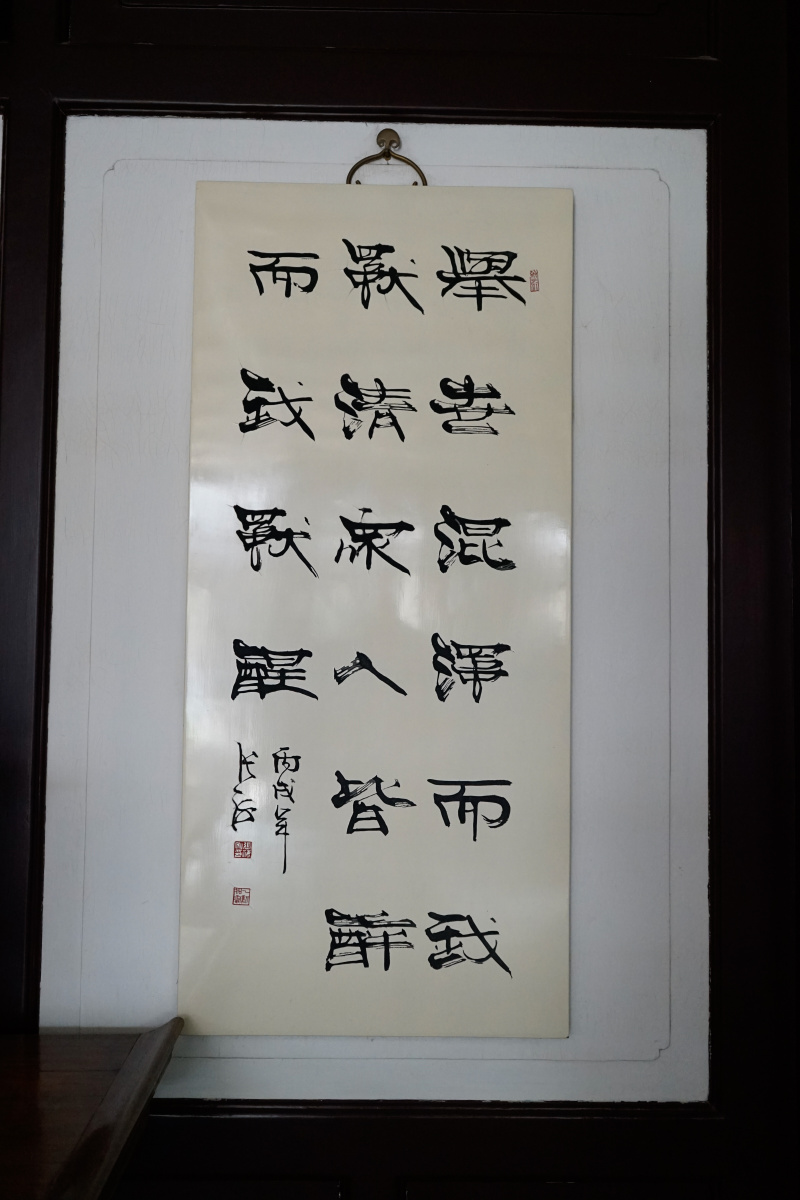 舉世混濁而我
獨清眾人皆醉
而我獨醒
丙戌年
張海